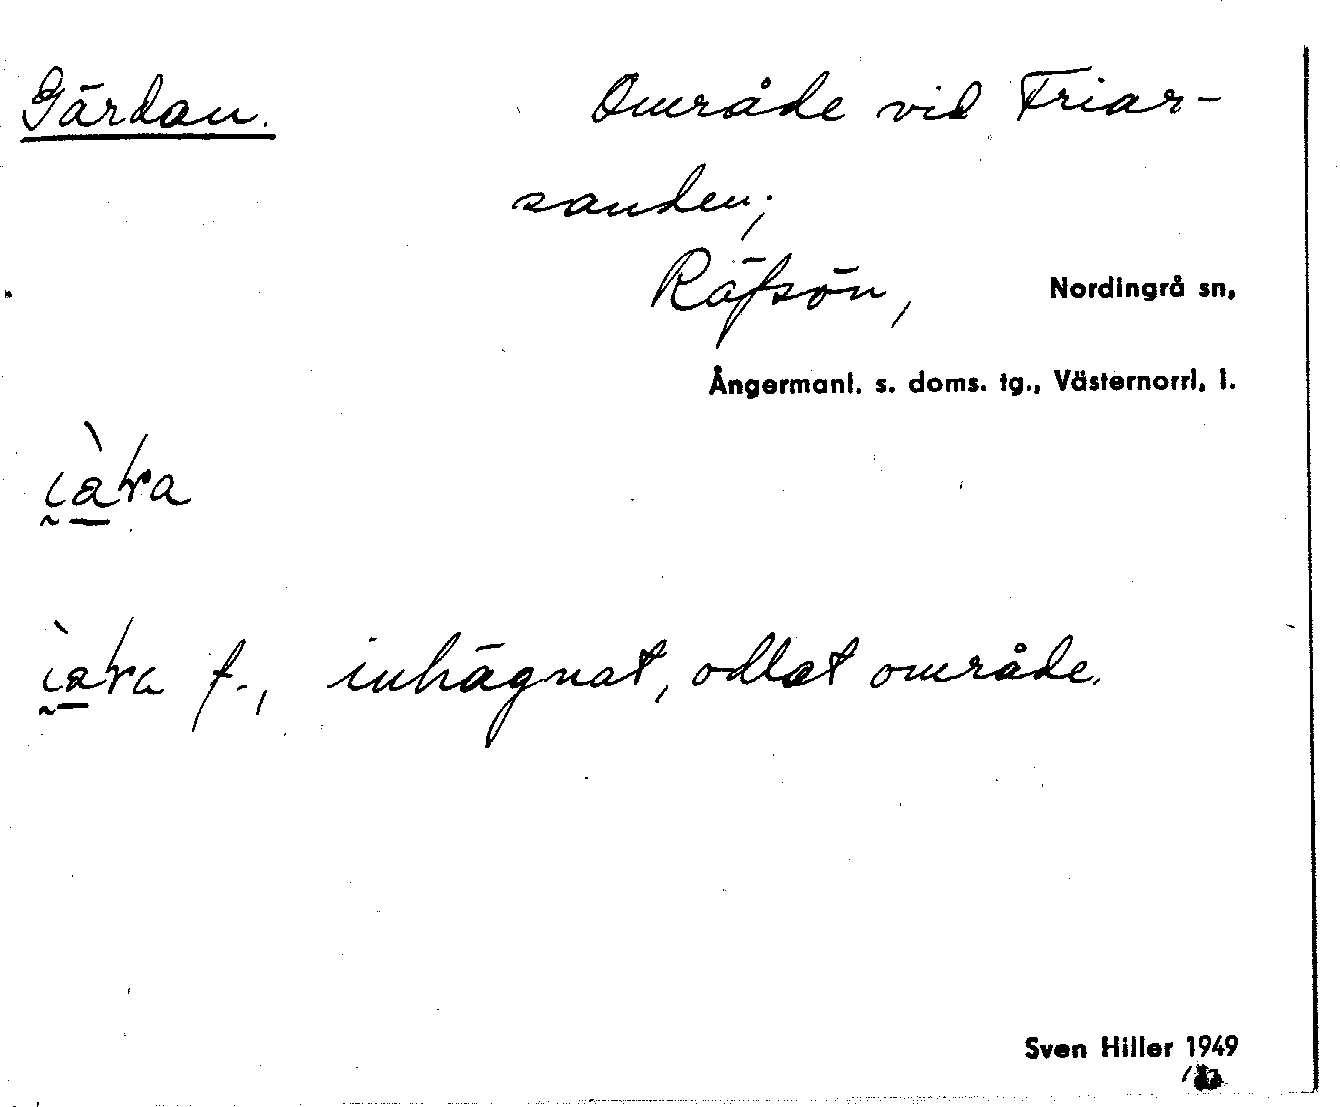 Gärdan. Område vid Friar-
sanden;
Räfsön, Nordingrå sn,
Ångermanl. s. doms. tg., Västernorrl. l.
f., inhägnat, odlat område.
Sven Hiller 1949